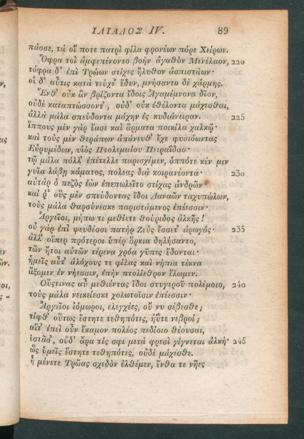 ΙΛΙΑΔΟΣ IV. 89
πάσσε, τά οἵ ποτε πατρὶ φίλα φρονέων πόρε Χείρων.
Ὄφρα τοὶ ἀμφεπένοντο βοὴν ἀγαθὸν Μενέλαον, 220
τόφρα δ᾽ ἐπὶ Τρώων στίχες ἤλυθον ἀσπιστάων·
οἱ δ᾽ αὖτις κατὰ τεύχε᾽ ἔδυν, μνήσαντο δὲ χάρμης.
Ἔνθ᾽ οὐκ ἂν βρίζοντα ἴδοις Ἀγαμέμνονα δῖον,
οὐδὲ καταπτώσσοντ᾽, οὐδ᾽ οὐκ ἐθέλοντα μάχεσθαι,
ἀλλὰ μάλα σπεύδοντα μάχην ἐς κυδιάνειραν. 225
ἵππους μὲν γὰρ ἔασε καὶ ἅρματα ποικίλα χαλκῷ·
καὶ τοὺς μὲν θεράπων ἀπάνευθ᾽ ἔχε φυσιόωντας
Εὐρυμέδων, υἱὸς Πτολεμαίου Πειραΐδαο·
τῷ μάλα πόλλ᾽ ἐπέτελλε παρισχέμεν, ὁππότε κέν μιν
γυῖα λάβῃ κάματος, πολέας διὰ κοιρανέοντα· 230
αὐτὰρ ὁ πεζὸς ἐὼν ἐπεπωλεῖτο στίχας ἀνδρῶν·
καί ῥ᾽ οὓς μὲν σπεύδοντας ἴδοι Δαναῶν ταχυπώλων,
τοὺς μάλα θαρσύνεσκε παριστάμενος ἐπέεσσιν·
Ἀργεῖοι, μήπω τι μεθίετε θούριδος ἀλκῆς!
οὐ γὰρ ἐπὶ ψευδέσσι πατὴρ Ζεὺς ἔσσετ᾽ ἀρωγός· 235
ἀλλ᾽ οἵπερ πρότεροι ὑπὲρ ὅρκια δηλήσαντο,
τῶν ἤτοι αὐτῶν τέρενα χρόα γῦπες ἔδονται·
ἡμεῖς αὖτ᾽ ἀλόχους τε φίλας καὶ νήπια τέκνα
ἄξομεν ἐν νήεσσιν, ἐπὴν πτολίεθρον ἕλωμεν.
Οὕστινας αὖ μεθιέντας ἴδοι στυγεροῦ πολέμοιο, 240
τοὺς μάλα νεικείεσκε χολωτοῖσιν ἐπέεσσιν·
Ἀργεῖοι ἰόμωροι, ἐλεγχέες, οὔ νυ σέβεσθε;
τίφθ᾽ οὕτως ἔστητε τεθηπότες, ἠΰτε νεβροί;
αἵτ᾽ ἐπεὶ οὖν ἔκαμον πολέος πεδίοιο θέουσαι,
ἑστᾶσ᾽, οὐδ᾽ ἄρα τίς σφι μετὰ φρεσὶ γίγνεται ἀλκή· 245
ὣς ὑμεῖς ἔστητε τεθηπότες, οὐδὲ μάχεσθε.
ἦ μένετε Τρῶας σχεδὸν ἐλθέμεν, ἔνθα τε νῆες